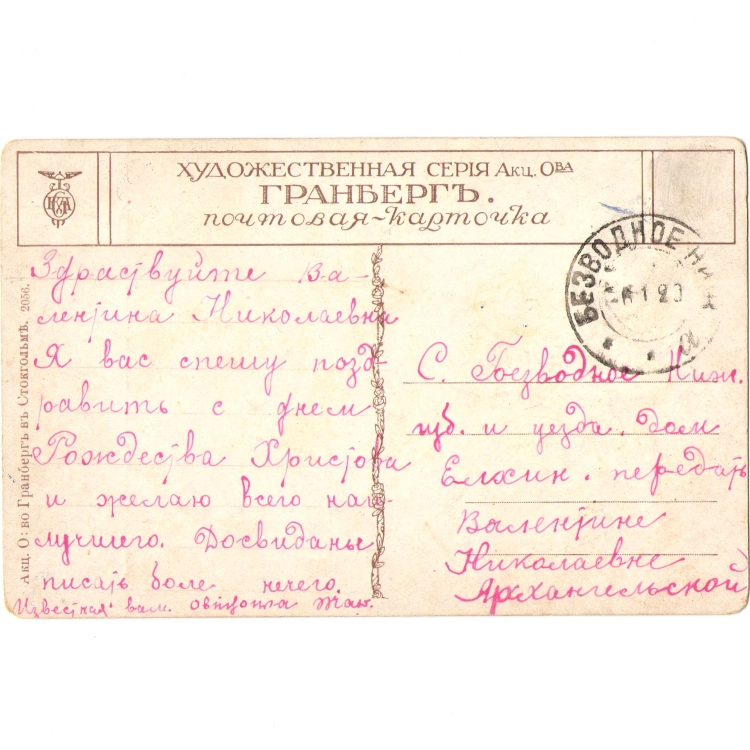 ХУДОЖЕСТВЕННАЯ СЕРІЯ Акц. Ова
ГРАНБЕРГЪ.
почтовая-карточка
Акц. О: во Гранбергъ въ Стокгольмѣ. 2056.
Здраствуйте Ва-
лентина Николаевна
Я вас спешу позд-
равить с днем
Рождества Христова
и желаю всего наи-
лучшего. Досвиданье
писать боле нечего.
Известная вам.
БЕЗВОДНОЕ НИЖ
6 1 20
С. Безводное Ниж.
губ. и уезда. дом
Елхин. передать
Валентине
Николаевне
Архангельской